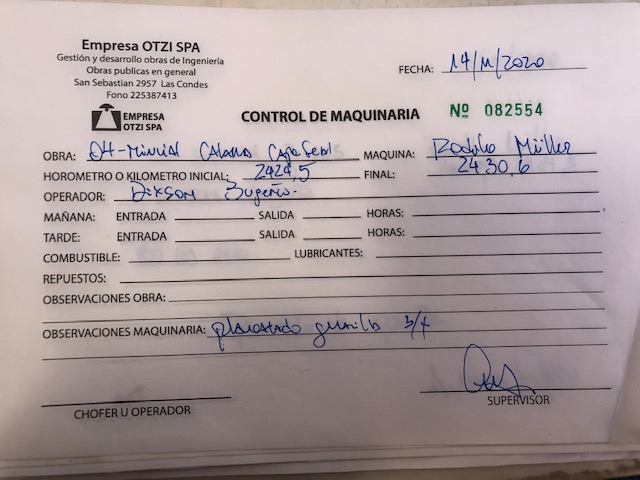 Empresa OTZI SPA
Gestión y desarrollo obras de Ingeniería
Obras publicas en general
San Sebastian 2957 Las Condes
Fono 225387413
FECHA: 14/11/2020
EMPRESA
OTZI SPA
CONTROL DE MAQUINARIA Nº 082554
OBRA: Calama MAQUINA: Rodillo Müller
HOROMETRO O KILOMETRO INICIAL: 2424,5 FINAL: 2430,6
OPERADOR: Dikson
MAÑANA: ENTRADA SALIDA HORAS:
TARDE: ENTRADA SALIDA HORAS:
COMBUSTIBLE: LUBRICANTES:
REPUESTOS:
OBSERVACIONES OBRA:
OBSERVACIONES MAQUINARIA: 3/4
CHOFER U OPERADOR
SUPERVISOR